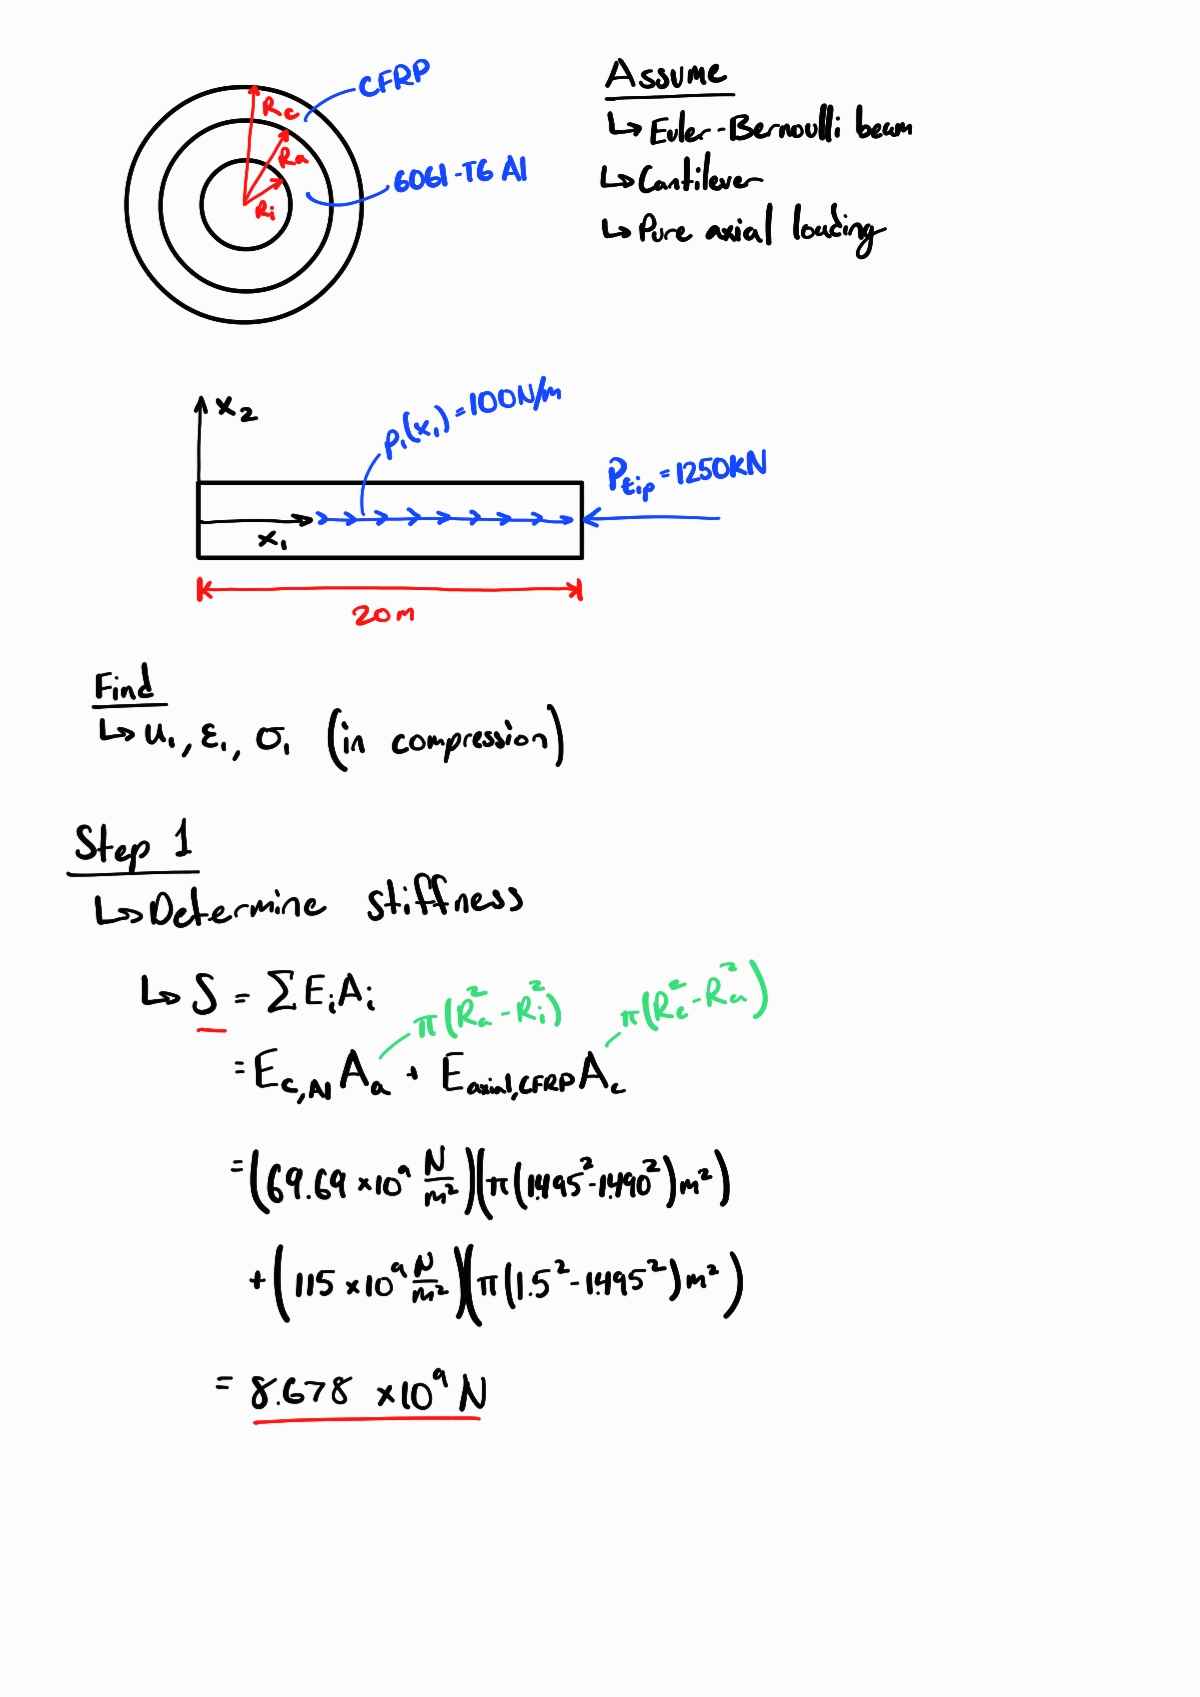 CFRP
R_c
R_a
R_i
6061-T6 Al
Assume
↳ Euler-Bernoulli beam
↳ Cantilever
↳ Pure axial loading
x₂
p₁(x₁) = 100N/m
P_tip = 1250KN
x₁
20m
Find
↳ u₁, ε₁, σ₁ (in compression)
Step 1
↳ Determine stiffness
↳ S = ΣE_iA_i
π(R_a² - R_i²) π(R_c² - R_a²)
= E_c,Al A_a + E_axial,CFRP A_c
= (69.69 ×10⁹ N/m²)(π(1.495² - 1.490²)m²)
+ (115 ×10⁹ N/m²)(π(1.5² - 1.495²)m²)
= 8.678 ×10⁹ N